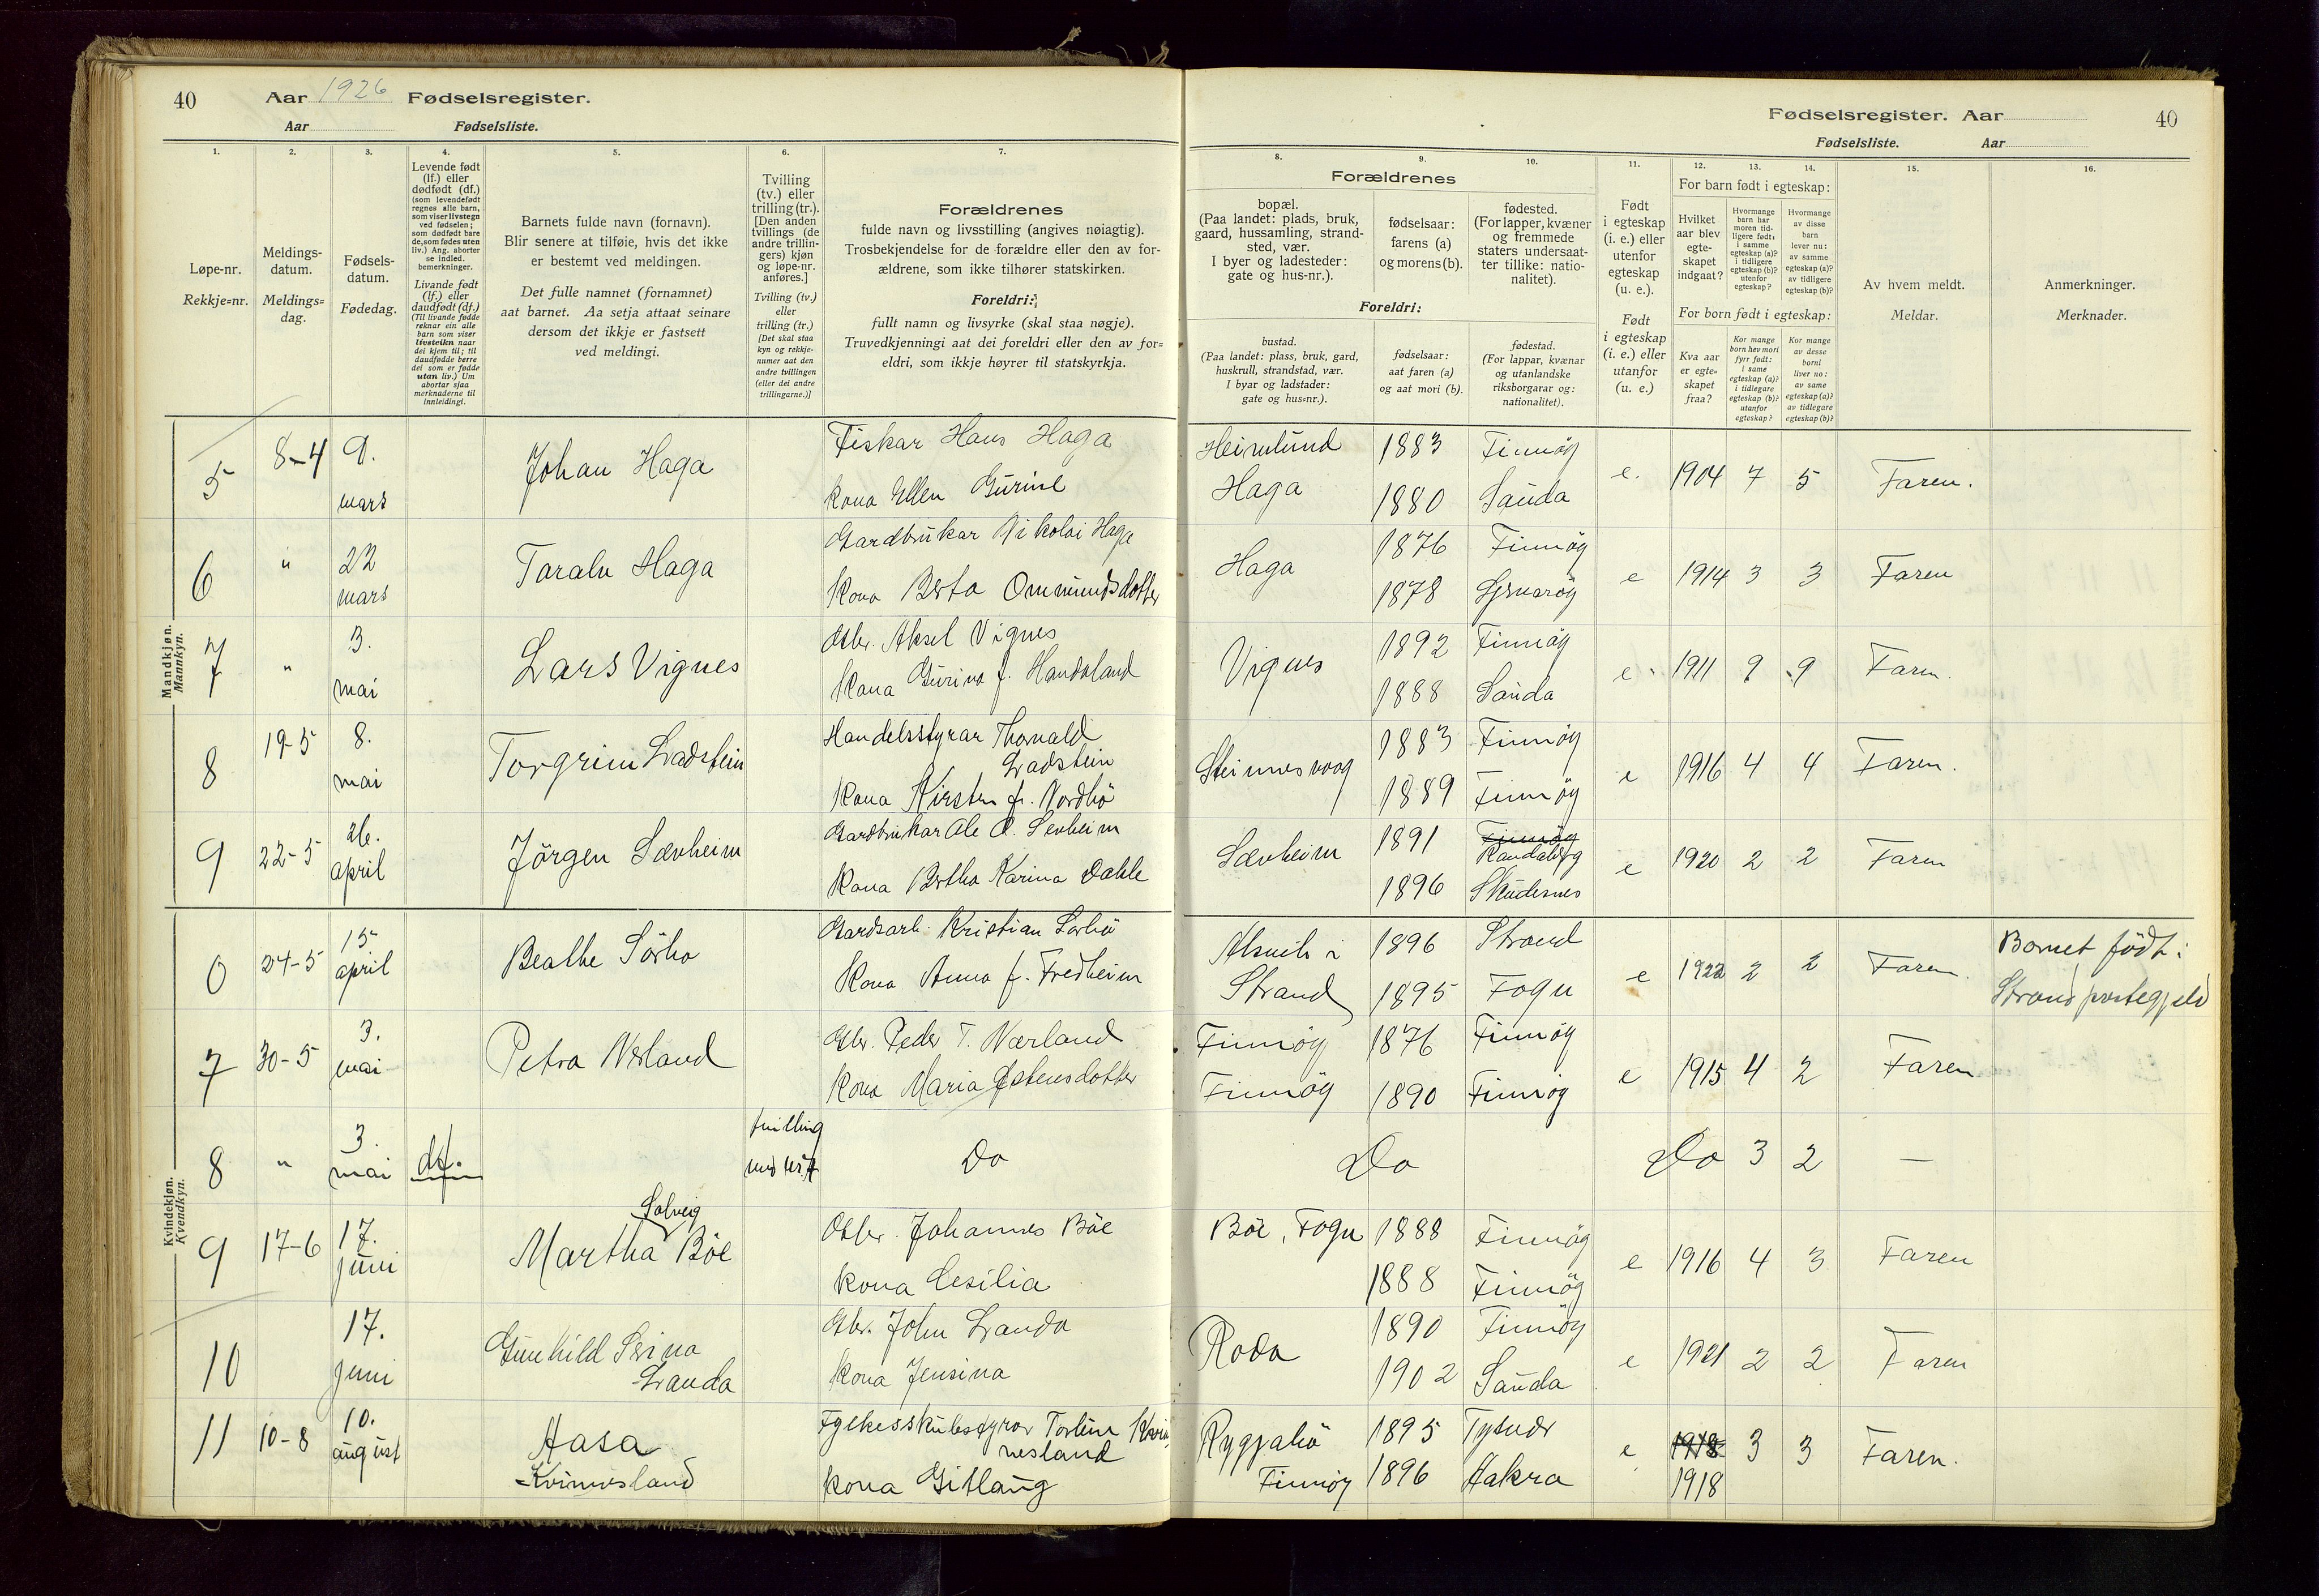 40 Aar 1926 Fødselsregister.
Aar Fødselsliste.
Fødselsregister. Aar 40
Fødselsliste. Aar
1. 2. 3. 4. 5. 6. 7.
8. 9. 10. 11. 12. 13. 14. 15. 16.
Løpe-nr.
Rekkje-nr.
Meldings-
datum.
Meldings-
dag.
Fødsels-
datum.
Fødedag.
Levende født
(lf.) eller
dødfødt (df.)
(som levendefødt
regnes alle barn,
som viser livstegn
ved fødselen;
som dødfødt bare
de, som fødes uten
liv.) Ang. aborter
se indled.
bemerkninger.
Livande født
(lf.) eller
daudfødt (df.)
(Til livande fødde
reknar ein alle
barn som viser
livsteikn naar
dei kjem til; til
daudfødde berre
dei som er fødde
utan liv.) Um
abortar sjaa
merknaderne til
innleidingi.
Barnets fulde navn (fornavn).
Blir senere at tilføie, hvis det ikke
er bestemt ved meldingen.
Det fulle namnet (fornamnet)
aat barnet. Aa setja attaat seinare
dersom det ikkje er fastsett
ved meldingi.
Tvilling
(tv.) eller
trilling (tr.).
[Den anden
tvillings (de
andre trillin-
gers) kjøn
og løpe-nr.
anføres.]
Tvilling (tv.)
eller
trilling (tr.)
[Det skal staa
kyn og rekkje-
numer aat den
andre tvillingen
(eller dei andre
trillingarne.)]
Forældrenes
fulde navn og livsstilling (angives nøiagtig).
Trosbekjendelse for de forældre eller den av for-
ældrene, som ikke tilhører statskirken.
Foreldri:
fullt namn og livsyrke (skal staa nøgje).
Truvedkjenningi aat dei foreldri eller den av for-
eldri, som ikkje høyrer til statskyrkja.
Forældrenes
bopæl.
(Paa landet: plads, bruk,
gaard, hussamling, strand-
sted, vær.
I byer og ladesteder:
gate og hus-nr.).
fødselsaar:
farens (a)
og morens (b).
fødested.
(For lapper, kvæner
og fremmede
staters undersaat-
ter tillike: natio-
nalitet).
Foreldri:
bustad.
(Paa landet: plass, bruk, gard,
huskrull, strandstad, vær.
I byar og ladstader:
gate og hus-nr.).
fødselsaar:
aat faren (a)
og aat mori (b).
fødestad.
(For lappar, kvænar
og utanlandske
riksborgarar og:
nationalitet).
Født
i egteskap
(i. e.) eller
utenfor
egteskap
(u. e.).
Født
i egteskap
(i. e.) eller
utanfor
(u. e.)
For barn født i egteskap:
Hvilket
aar blev
egte-
skapet
indgaat?
Hvormange
barn har
moren tid-
ligere født:
i samme
egteskap (a)?
i tidligere
egteskap (b)?
utenfor
egteskap?
Hvormange
av disse
barn
lever nu:
av samme
egteskap (a)?
av tidligere
egteskap (b)?
For born født i egteskap:
Kva aar
er egte-
skapet
fraa?
Kor mange
born hev mori
fyrr født:
i same
egteskap (a)?
i tidlegare
egteskap (b)?
utanfor
egteskap?
Kor mange
av desse
borni
liver no:
av same
egteskap (a)?
av tidlegare
egteskap (b)?
Av hvem meldt.
Meldar.
Anmerkninger.
Merknader.
Mandkjøn.
Mannkyn.
5 8-4 9. mars Johan Haga Fiskar Hans Haga
Kona Ellen Gurine
Heimlund Haga 1883 Finnöy e. 1904 7 5 Faren.
1880 Sauda
6 " 22 mars Taralv Haga Gardbrukar Nikolai Haga
Kona Berta Ommundsdotter
Haga 1876 Finnöy e 1914 3 3 Faren
1878 Sjernaröy
7 " 3. mai Lars Vignes Gbr. Aksel Vignes
Kona Gurina f. Handeland
Vignes 1892 Finnöy e. 1911 9 9 Faren.
1888 Sauda
8 19-5 8. mai Torgrim Ladstein Handelsstyrar Thorvald
Ladstein
Kona Kirsten f. Nordbö
Steinnesvaag 1883 Finnöy e 1916 4 4 Faren.
1889 Finnöy
9 22-5 26. april Jörgen Sævheim Gardbrukar Ole O. Sevheim
Kona Bertha Karina Dahle
Sævheim 1891 Finnöy Randaberg e 1920 2 2 Faren
1896 Skudesnes
Kvindekjøn.
Kvendkyn.
6 24-5 15. april Beathe Sörbö Gardsarb. Kristian Sörbö
Kona Anna f. Fredheim
i Strand 1896 Strand e 1922 2 2 Faren. Bornet födt i
1895 Fogn Strand prestegjeld
7 30-5 3. mai Petra Nærland Gbr. Peder T. Nærland
Kona Maria Østensdotter
Finnöy 1876 Finnöy e 1915 4 2 Faren
Finnöy 1890 Finnöy
8 " 3. mai df. tvilling med nr. 7 Do Do Do 3 2 —
9 17-6 17. juni Martha Solveig Böe Gbr. Johannes Böe
Kona Cesilia
Böe, Fogn 1888 Finnöy e 1916 4 3 Faren
1888 Finnöy
10 17. juni Gunhild Serina
Landa
Gbr. John Landa
Kona Jensina
Roda 1890 Finnöy e 1921 2 2 Faren
1902 Sauda
11 10-8 10. august Aasa
Kvinnesland
Fylkesskulestyrar Torleiv Kvin-
nesland
Kona Gitlaug
Ryggjabö 1895 Tysvær e 1918 3 3 Faren.
Finnöy 1896 Aakra 1918